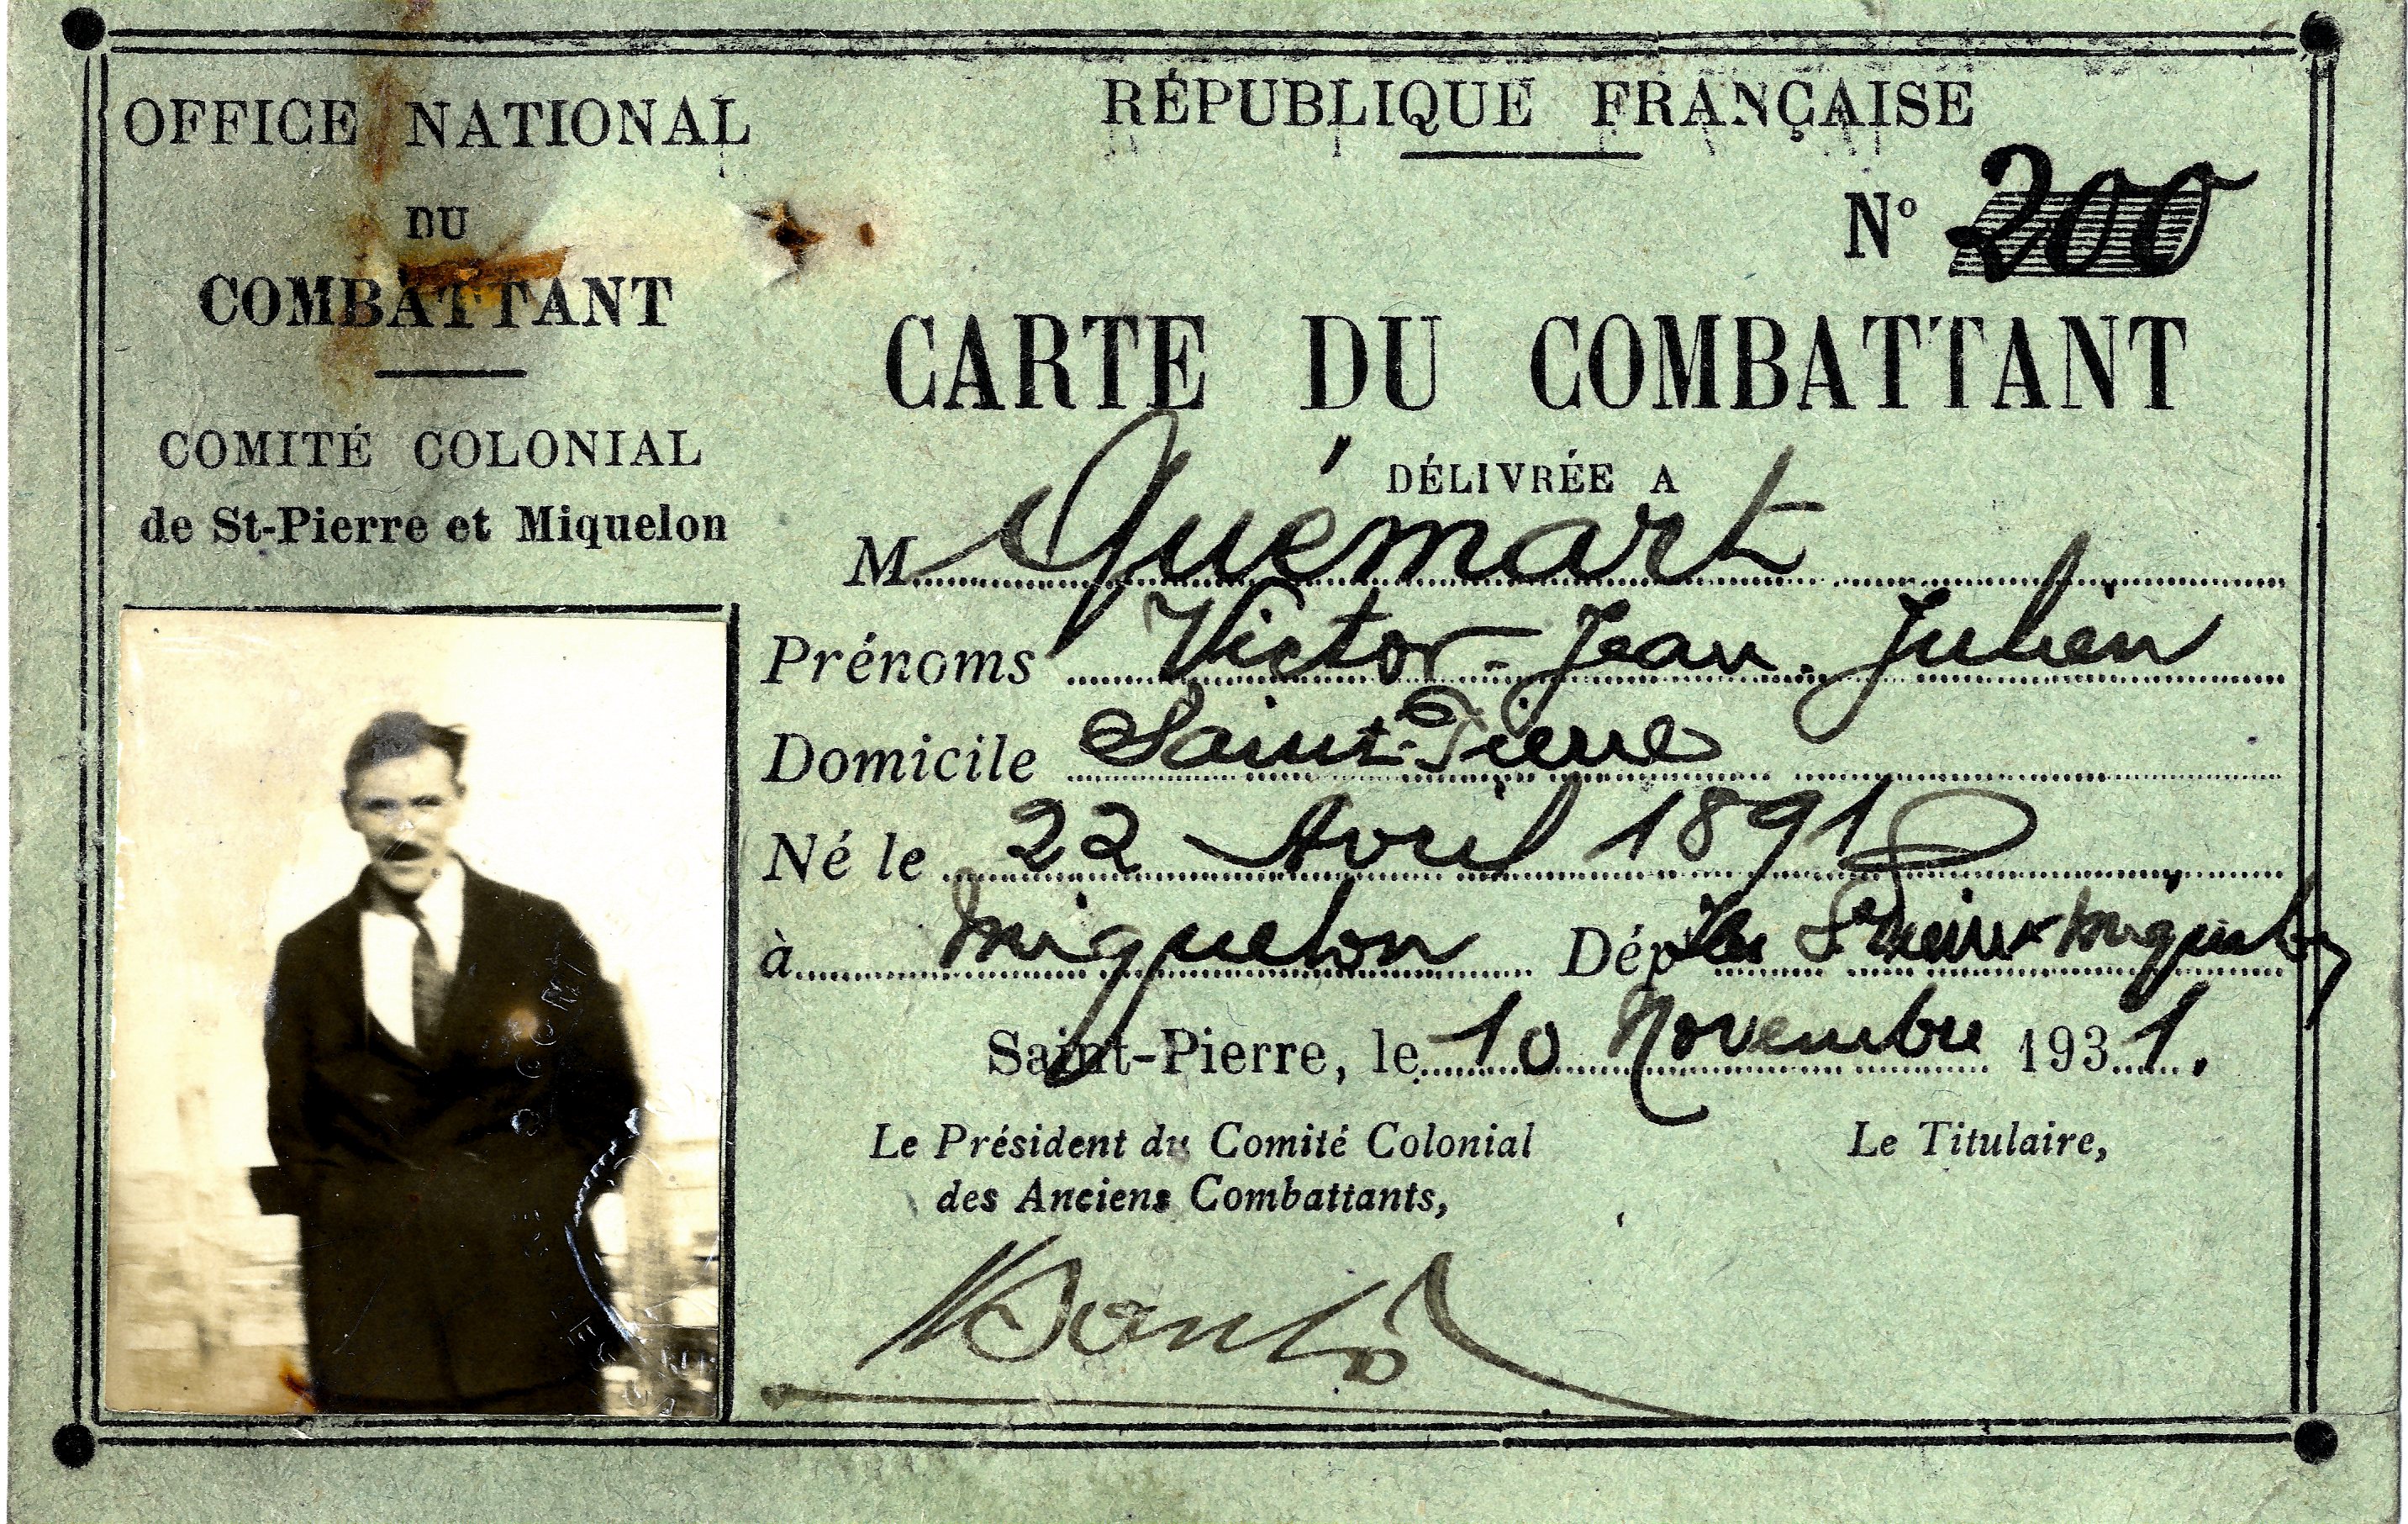 OFFICE NATIONAL
DU
COMBATTANT
COMITÉ COLONIAL
de St-Pierre et Miquelon
RÉPUBLIQUE FRANÇAISE
Nº 200
CARTE DU COMBATTANT
DÉLIVRÉE A
M Quémart
Prénoms Victor - Jean - Julien
Domicile Saint-Pierre
Né le 22 Avril 1891
à Miquelon Dép Iles St Pierre et Miquelon
Saint-Pierre, le 10 Novembre 1931.
Le Président du Comité Colonial
des Anciens Combattants,
Le Titulaire,